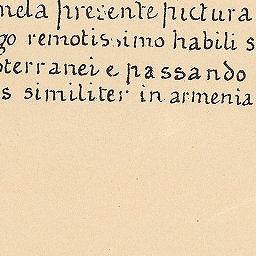 nela presente pictura
go remotissimo habili s
terranei e passando
s similiter in armenia